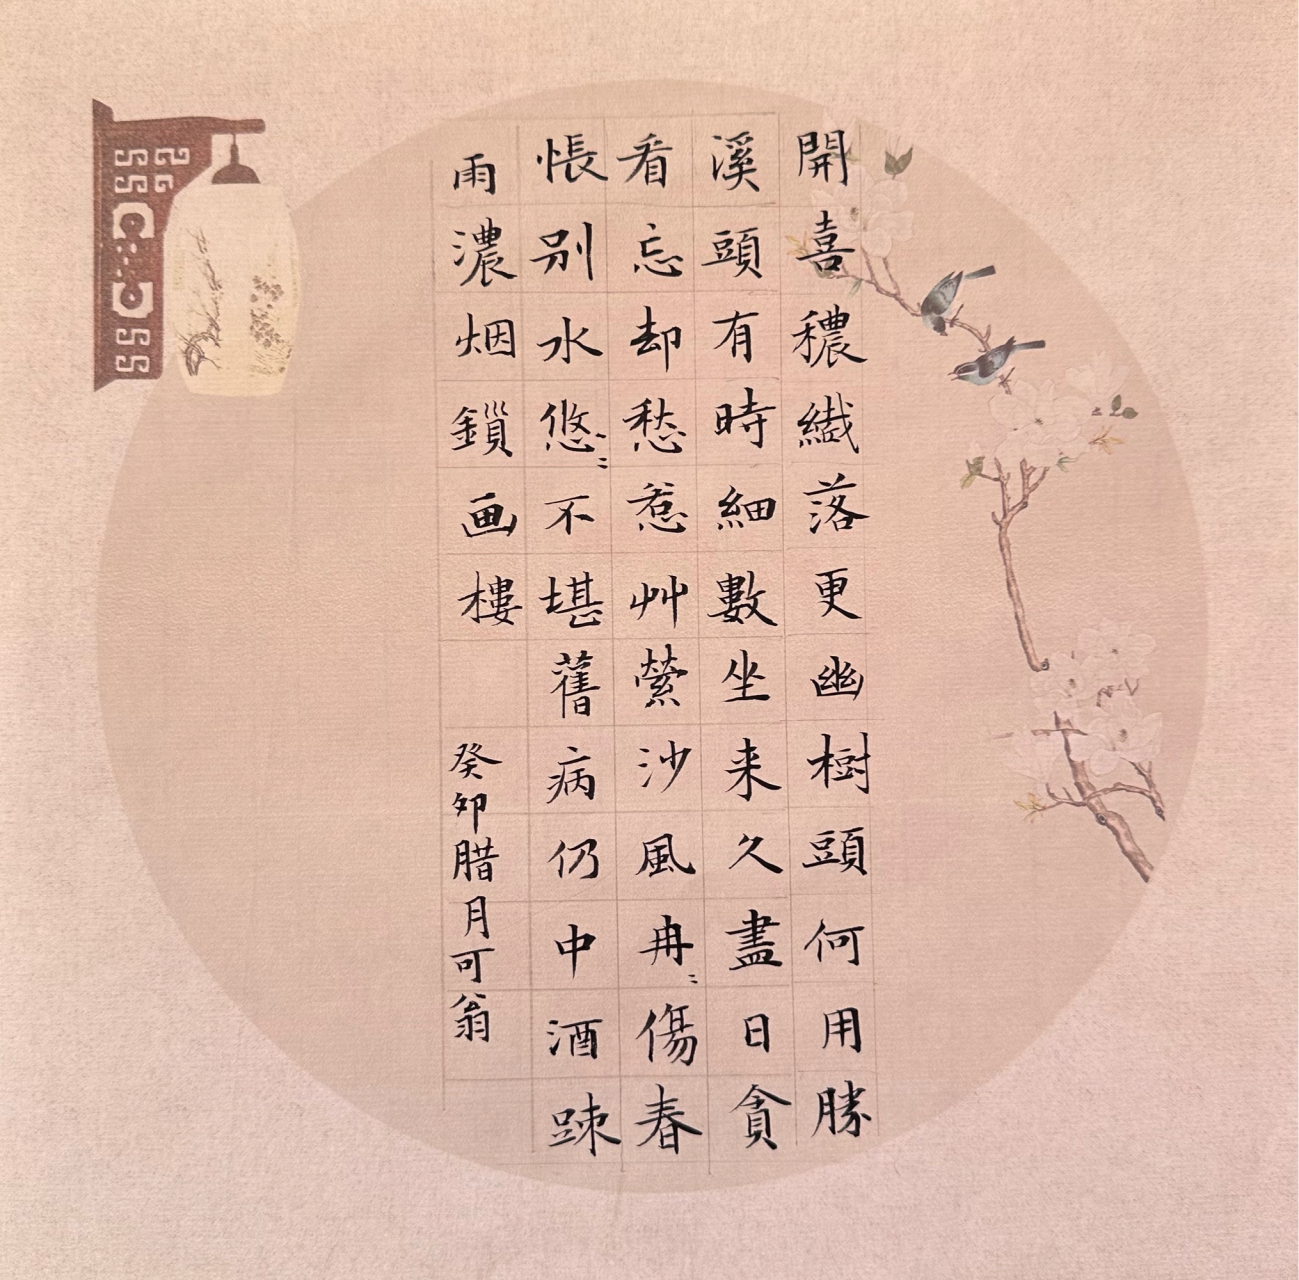 開喜穠纖落更幽樹頭何用勝
溪頭有時細數坐来久盡日貪
看忘却愁惹艸縈沙風冉〻傷春
悵別水悠〻不堪舊病仍中酒踈
雨濃烟鎖画樓
癸卯腊月可翁